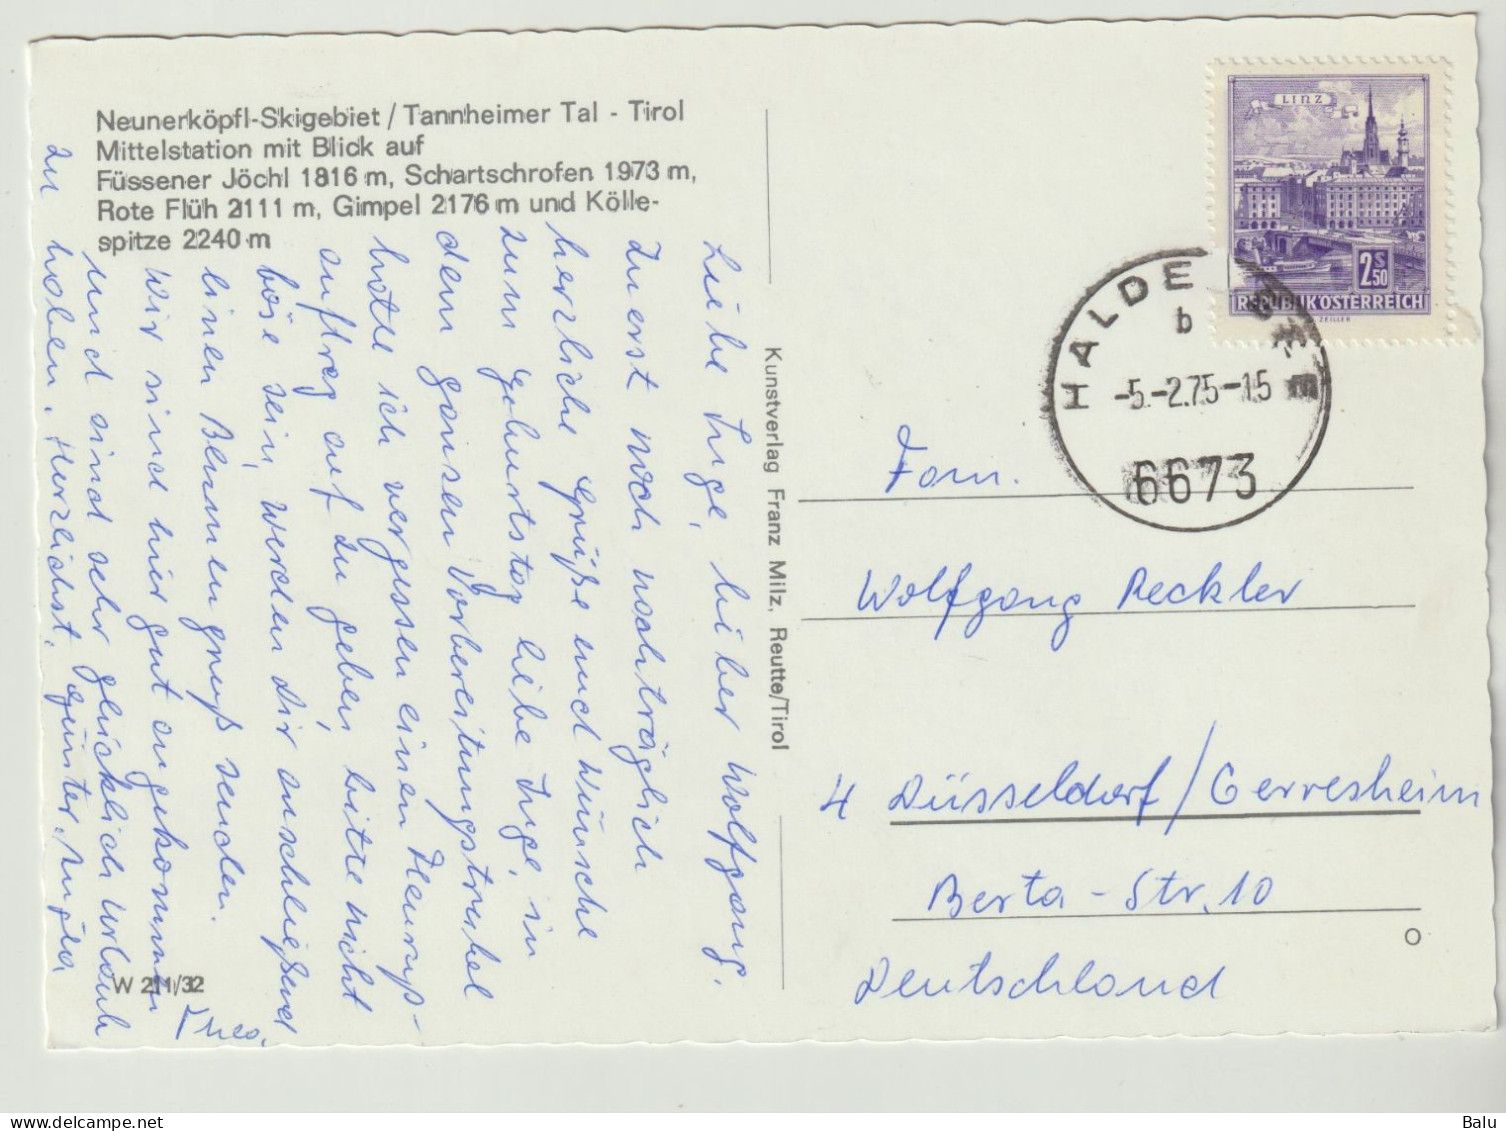 Neunerköpfl-Skigebiet / Tannheimer Tal - Tirol
Mittelstation mit Blick auf
Füssener Jöchl 1816 m, Schartschrofen 1973 m,
Rote Flüh 2111 m, Gimpel 2176 m und Kölle-
spitze 2240 m
Liebe Inge, lieber Wolfgang.
Zuerst noch nachträglich
herzliche Grüße und Wünsche
zum Geburtstag liebe Inge, in
dem ganzen Vorbereitungstrubel
hatte ich vergessen einen Fleurop-
auftrag auf zu geben, bitte nicht
böse sein, werden dir anschließend
einen Blumengruß senden.
Wir sind hier gut angekommen
und sind sehr glücklich Urlaub
zu haben. Herzlichst, Günter,
Theo.
W 211/32
Kunstverlag Franz Milz, Reutte/Tirol
LINZ
2 S 50
REPUBLIK ÖSTERREICH
ZEILLER
HALDENSEE
b
-5.-2.75-15
6673
Fam.
Wolfgang Reckler
4 Düsseldorf/Gerresheim
Berta-Str. 10
Deutschland
Balu